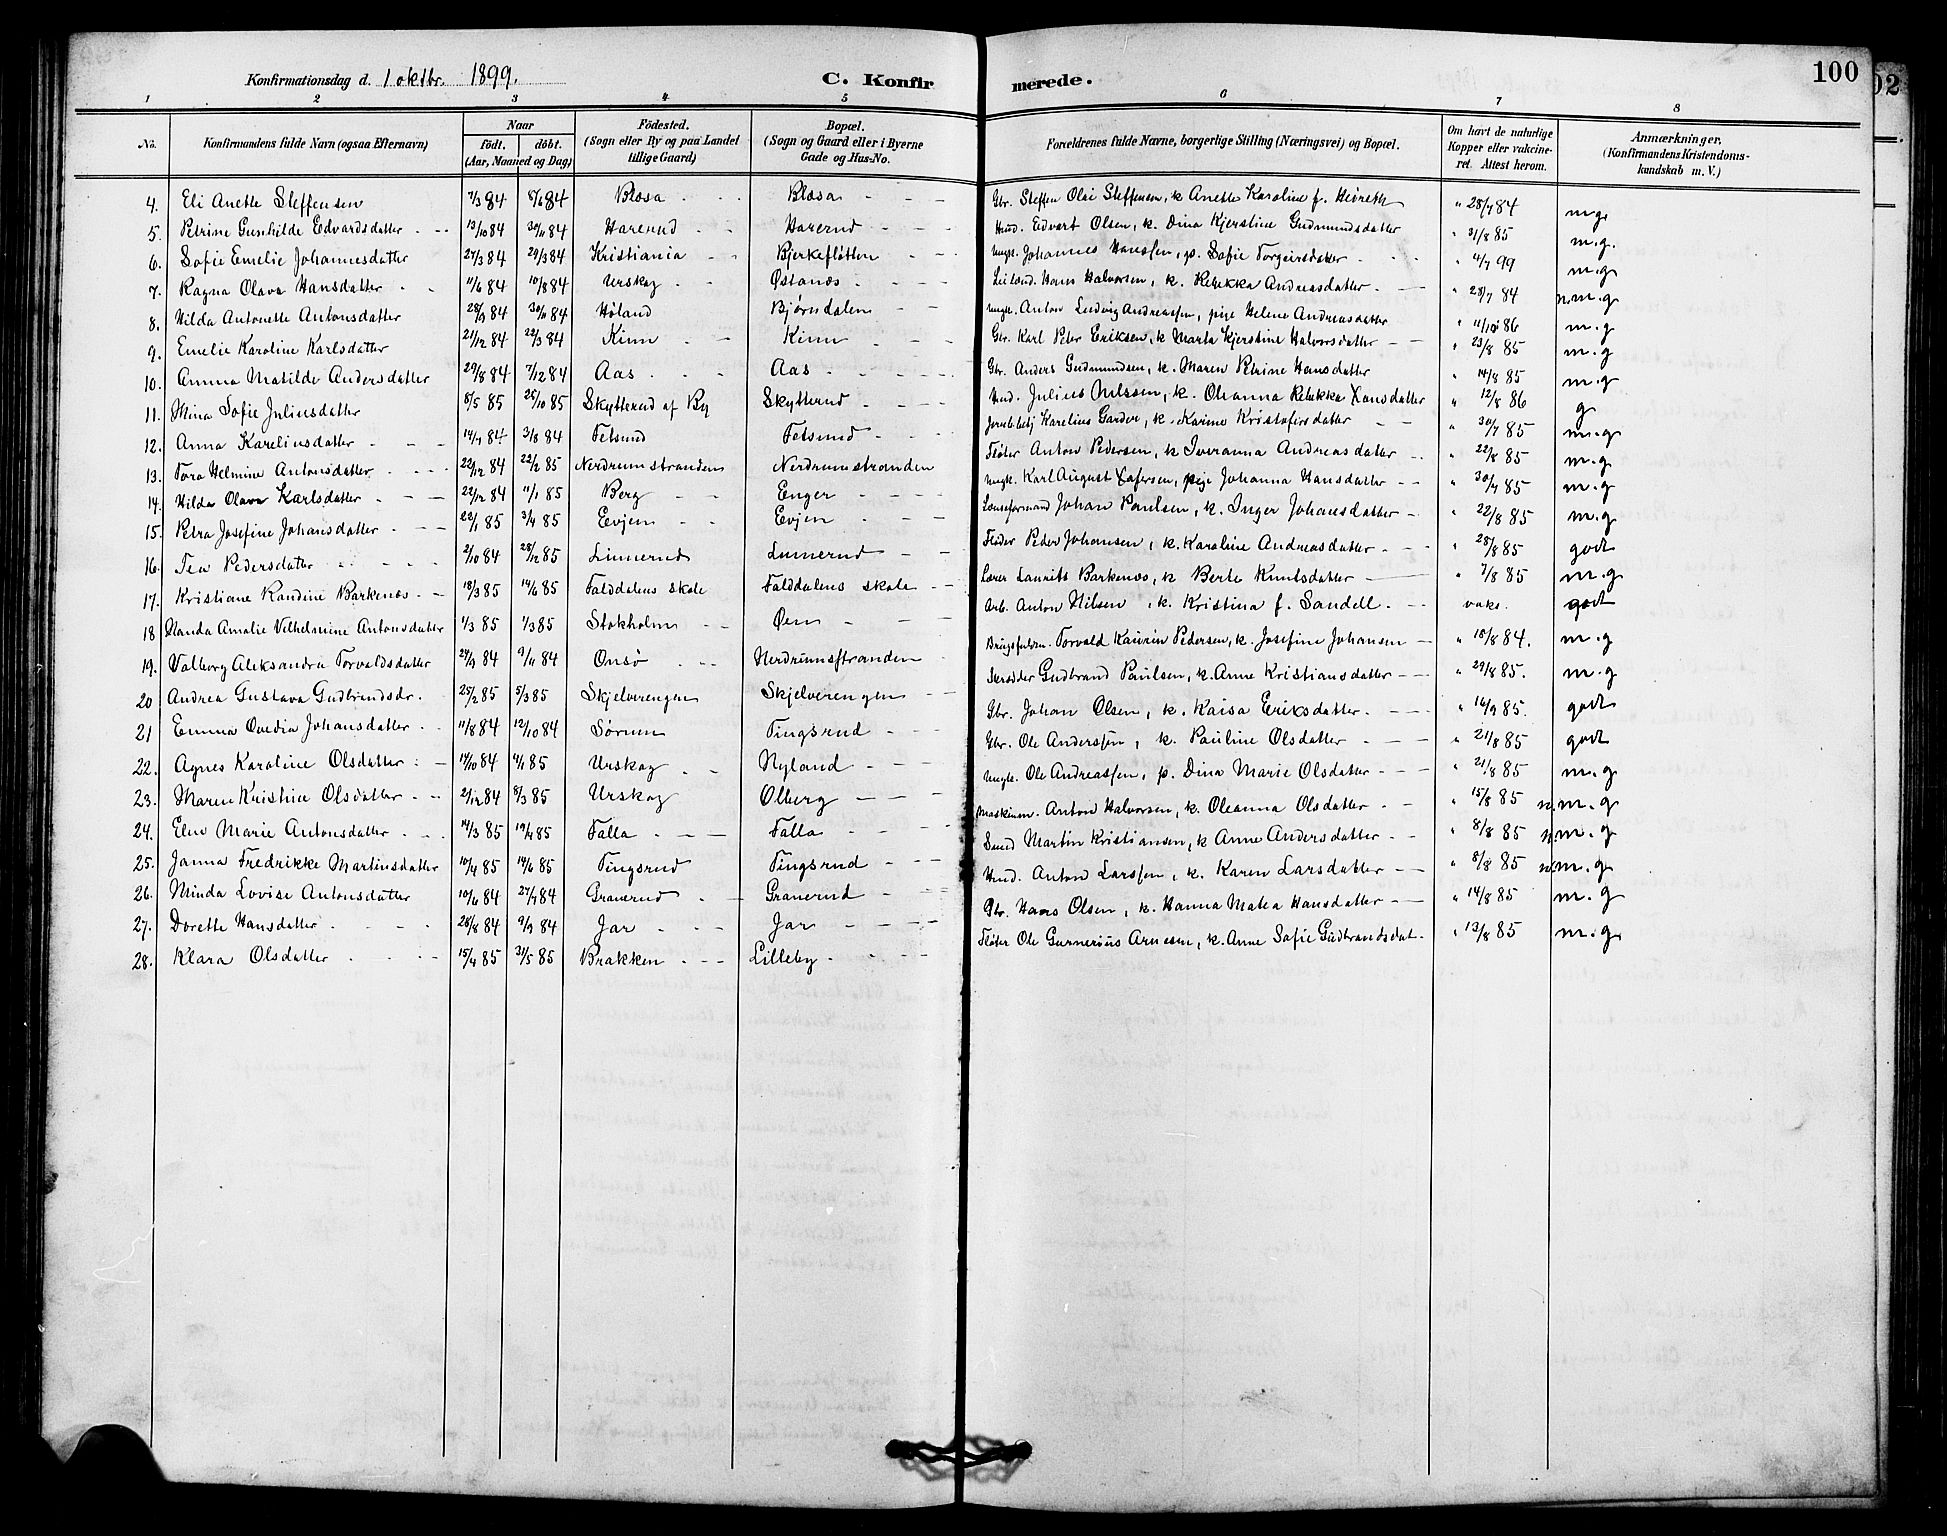 100
02
Konfirmationsdag d. 1 oktbr. 1899. C. Konfirmerede.
1 2 3 4 5 6 7 8
No. Konfirmandens fulde Navn (ogsaa Efternavn) Naar Födt. döbt. (Aar, Maaned og Dag) Födested. (Sogn eller By og paa Landet tillige Gaard) Bopæl. (Sogn og Gaard eller i Byerne Gade og Hus-No. Forældrenes fulde Navne, borgerlige Stilling (Næringsvei) og Bopæl. Om havt de naturlige Kopper eller vakcineret. Attest herom. Anmærkninger, (Konfirmandens Kristendomskundskab m. V.)
4. Eli Anette Steffensen 7/3 84 8/6 84 Blæsa - - Blæsa - - - Gbr. Steffen Olai Steffensen, k. Anette Karoline f. " 28/7 84 m.g.
5. Petrine Gunhilde Edvardsdatter - - 13/10 84 30/11 84 Harerud - - Harerud - - Hmd. Edvart Olsen, k. Dina Kjerstine Gudmundsdatter " 31/8 85 m.g.
6. Sofie Emelie Johannesdatter 27/3 84 29/3 84 Kristiania - - Bjerkefløtten - - Ungk. Johannes Hanssen, p. Sofie Torgeirsdatter - - " 4/7 99 m.g
7. Ragna Olava Hansdatter - - 11/6 84 10/8 84 Urskog - - Østanæs - - - Leilænd. Hans Halvorsen, k. Rebekka Andreasdatter - - " 28/7 84 n.m.g
8. Hilda Antonette Antonsdatter 28/9 84 30/11 84 Høland Bjørndalen - Ungk. Anton Ludvig Andreassen, pige Helene Andreasdatter " 11/10 86 m.g
9. Emelie Karoline Karlsdatter 21/12 84 22/3 84 Kinn - - Kinn - - - Gbr. Karl Peter Eriksen, k Marta Kjerstine Halvorsdatter - - " 23/8 85 m.g
10. Anna Matilde Andersdatter 29/8 84 7/12 84 Aas - - Aas - - - Gbr. Anders Gudmundsen, k. Maren Petrine Hansdatter " 14/8 85 m.g
11. Mina Sofie Juliusdatter 8/5 85 25/10 85 Skytterud af By Skytterud - - - Hmd. Julius Nilssen, k. Oleanna Rebekka Hansdatter " 12/8 86 g
12. Anna Kareliusdatter - - - 14/7 84 3/8 84 Fetsund Fetsund - - - Karelius Garder, k. Karine Kristofersdatter - - " 30/7 85 m.g
13. Tora Helmine Antonsdatter - - - 22/12 84 22/2 85 Nerdrumstranden Nerdrumstranden Fløter Anton Pedersen, k Iveranna Andreasdatter - - " 22/8 85 m.g
14. Hilda Olava Karlsdatter - - - 22/12 84 11/1 85 Berg - - Enger - - - Ungk. Karl August , pige Johanna Hansdatter - - " 30/7 85 m.g
15. Petra Josefine Johansdatter - - - 22/1 85 3/4 85 Eevjen - - Evjen - - - Lænseformand Johan Paulsen, k. Inger Johansdatter - " 22/8 85 m.g
16. Tea Pedersdatter - - - 2/10 84 28/12 85 Linnerud Linnerud - - Fløder Peder Johansen, k. Karoline Andreasdatter - - - " 28/8 85 godt
17. Kristiane Randine Barkenæs - - 18/3 85 14/6 85 Falddalens skole Falddalens skole - Lærer Laurits Barkenæs, k Berte Knutsdatter - - " 7/8 85 m.g
18 Handa Amalie Vilhelmine Antonsdatter 1/3 85 1/3 85 Stokholm - - Øen - - - Arb. Anton Nilsen, k. Kristina f. Sandell. - - vaks. godt
19. Valborg Aleksandra Torvaldsdatter 24/9 84 9/11 84 Onsø - - Nerdrumsstranden - Brugsfuldm. Torvald Kaurin Pedersen, k. Josefine Johansen - " 18/8 84. m.g
20 Andrea Gustava Gudbrandsdr. 25/2 85 5/3 85 Skjelverengen Skjelverengen - - Skrædder Gudbrand Paulsen, k. Anne Kristiansdatter - - " 29/8 85. m.g
21 Emma Ovedia Johansdatter - - 11/8 84 12/10 84 Sørum Tingsrud - - Gbr. Johan Olsen, k. Kaisa Eriksdatter - - - " 16/9 85. godt
22. Agnes Karoline Olsdatter - - 14/10 84 4/1 85 Urskog - - Nyland - - Gbr. Ole Anderssen, k. Pauline Olsdatter - - - " 21/8 85 godt
23. Maren Kristine Olsdatter - - 2/12 84 8/3 85 Urskog Olberg - - - Ungk. Ole Andreassen, p. Dina Marie Olsdatter - - - " 21/8 85 m.g
24. Elna Marie Antonsdatter - - 14/3 85 19/4 85 Falla - - - Falla - - - Maskinm. Anton Halvorsen, k. Oleanna Olsdatter - - " 15/8 85 n.m.g
25. Janna Fredrikke Martinsdatter 10/4 85 14/6 85 Tingsrud Tingsrud - - - Smed Martin Kristiansen, k Anne Andersdatter - - " 8/8 85 n.m.g
26. Minda Lovise Antonsdatter 10/6 84 27/7 84 Granerud - - Granerud - - Hmd. Anton Larssen, k. Karen Larsdatter - - " 8/8 85 n.m.g
27. Dorette Hansdatter - - - 28/8 84 9/9 84 Jar - - Jar - - - Gbr. Hans Olsen, k. Hanna Matea Hansdatter - - " 14/8 85 m.g
28. Klara Olsdatter - - - 15/4 85 31/5 85 Brakken - - - Lilleby - - - Fløter Ole Gunnerius Arnesen, k. Anne Sofie Gudbrandsdat. - " 13/8 85 m.g.